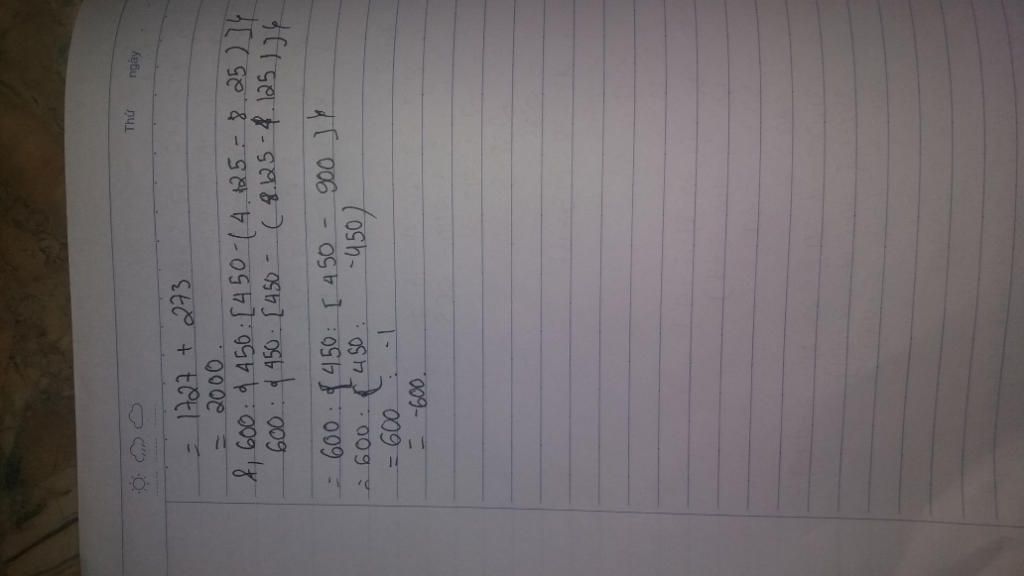 Thứ
ngày
= 1727 + 273
= 2000.
f, 600 : { 450 : [ 450 - ( 4 . 125 - 8 . 25 ) ] }
600 : { 450 : [ 450 - ( 8125 - 4 . 125 ) ] }
= 600 : { 450 : [ 450 - 900 ] }
= 600 : { 450 : -450 )
= 600 : -1
= -600.